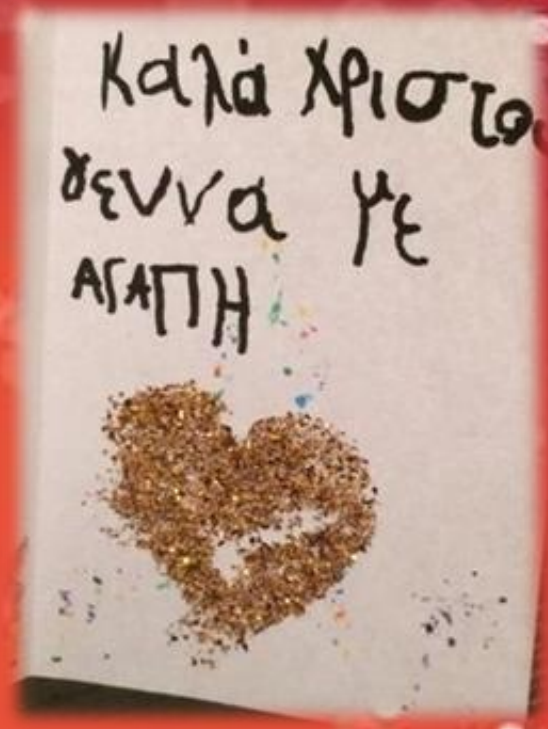 Καλά Χριστο
γεννα με
ΑΓΑΠΗ